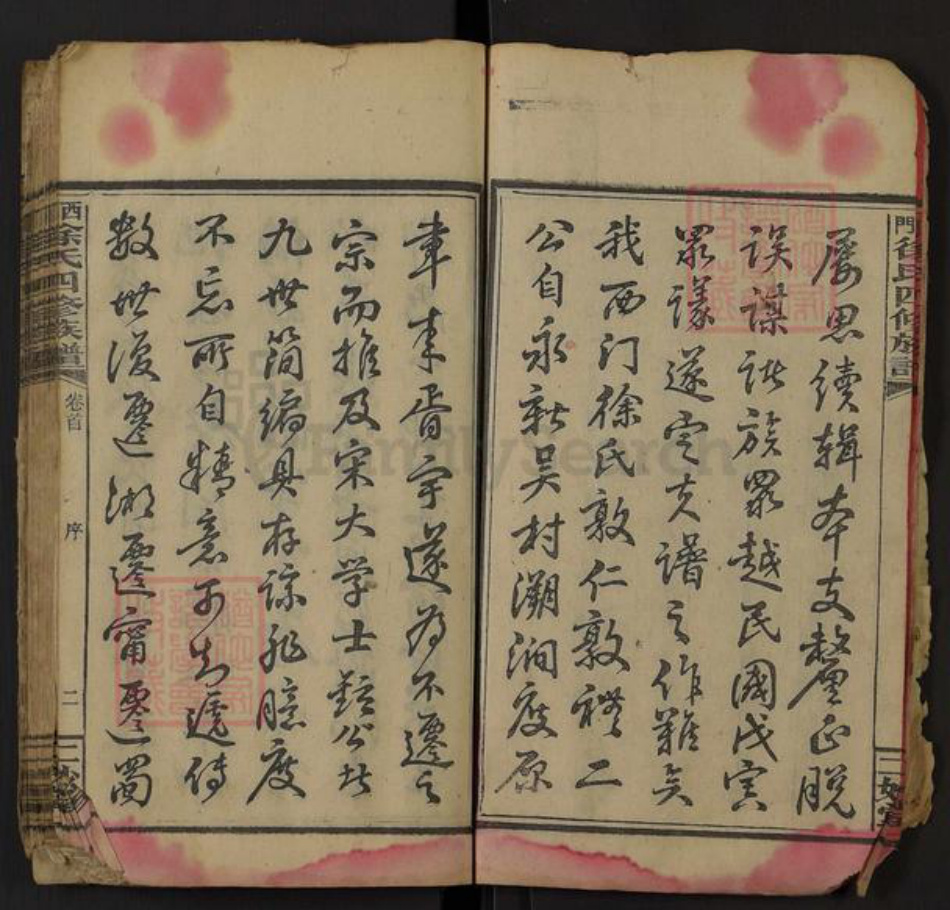 門徐氏四修族譜
屢思續輯本支釐正脫
誤謀諸族眾越民國戊寅
眾議遂定夫譜之作難矣
我西门徐氏敦仁敦禮二
公自永新吴村溯洄度原
章来胥宇遂为不遷之
宗而推及宋大学士鉉公於
九世简编具存諒非臆度
不忘所自精意可知遞传
数世復遷湘遷甯遷蜀
西徐氏四修族譜
卷首
序
二
FamilySearch